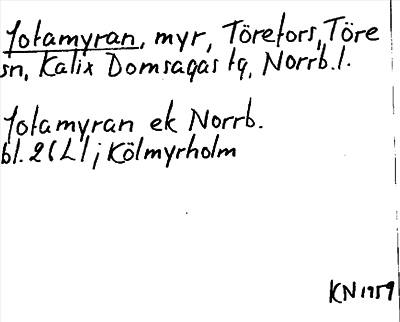 Jotamyran, myr, Törefors, Töre
sn, Kalix Domsagas tg, Norrb. l.
Jotamyran ek Norrb.
bl. 26 (L) ; Kölmyrholm
KN 1959